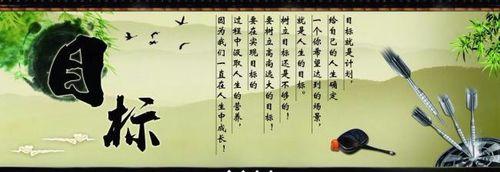 目标
目标就是计划，
给自己的人生确定
一个你希望达到的场景，
就是人生的目标。
树立目标还是不够的！
要树立高尚远大的目标！
要在实现目标的
过程中汲取人生的营养，
因为我们一直在人生中成长！